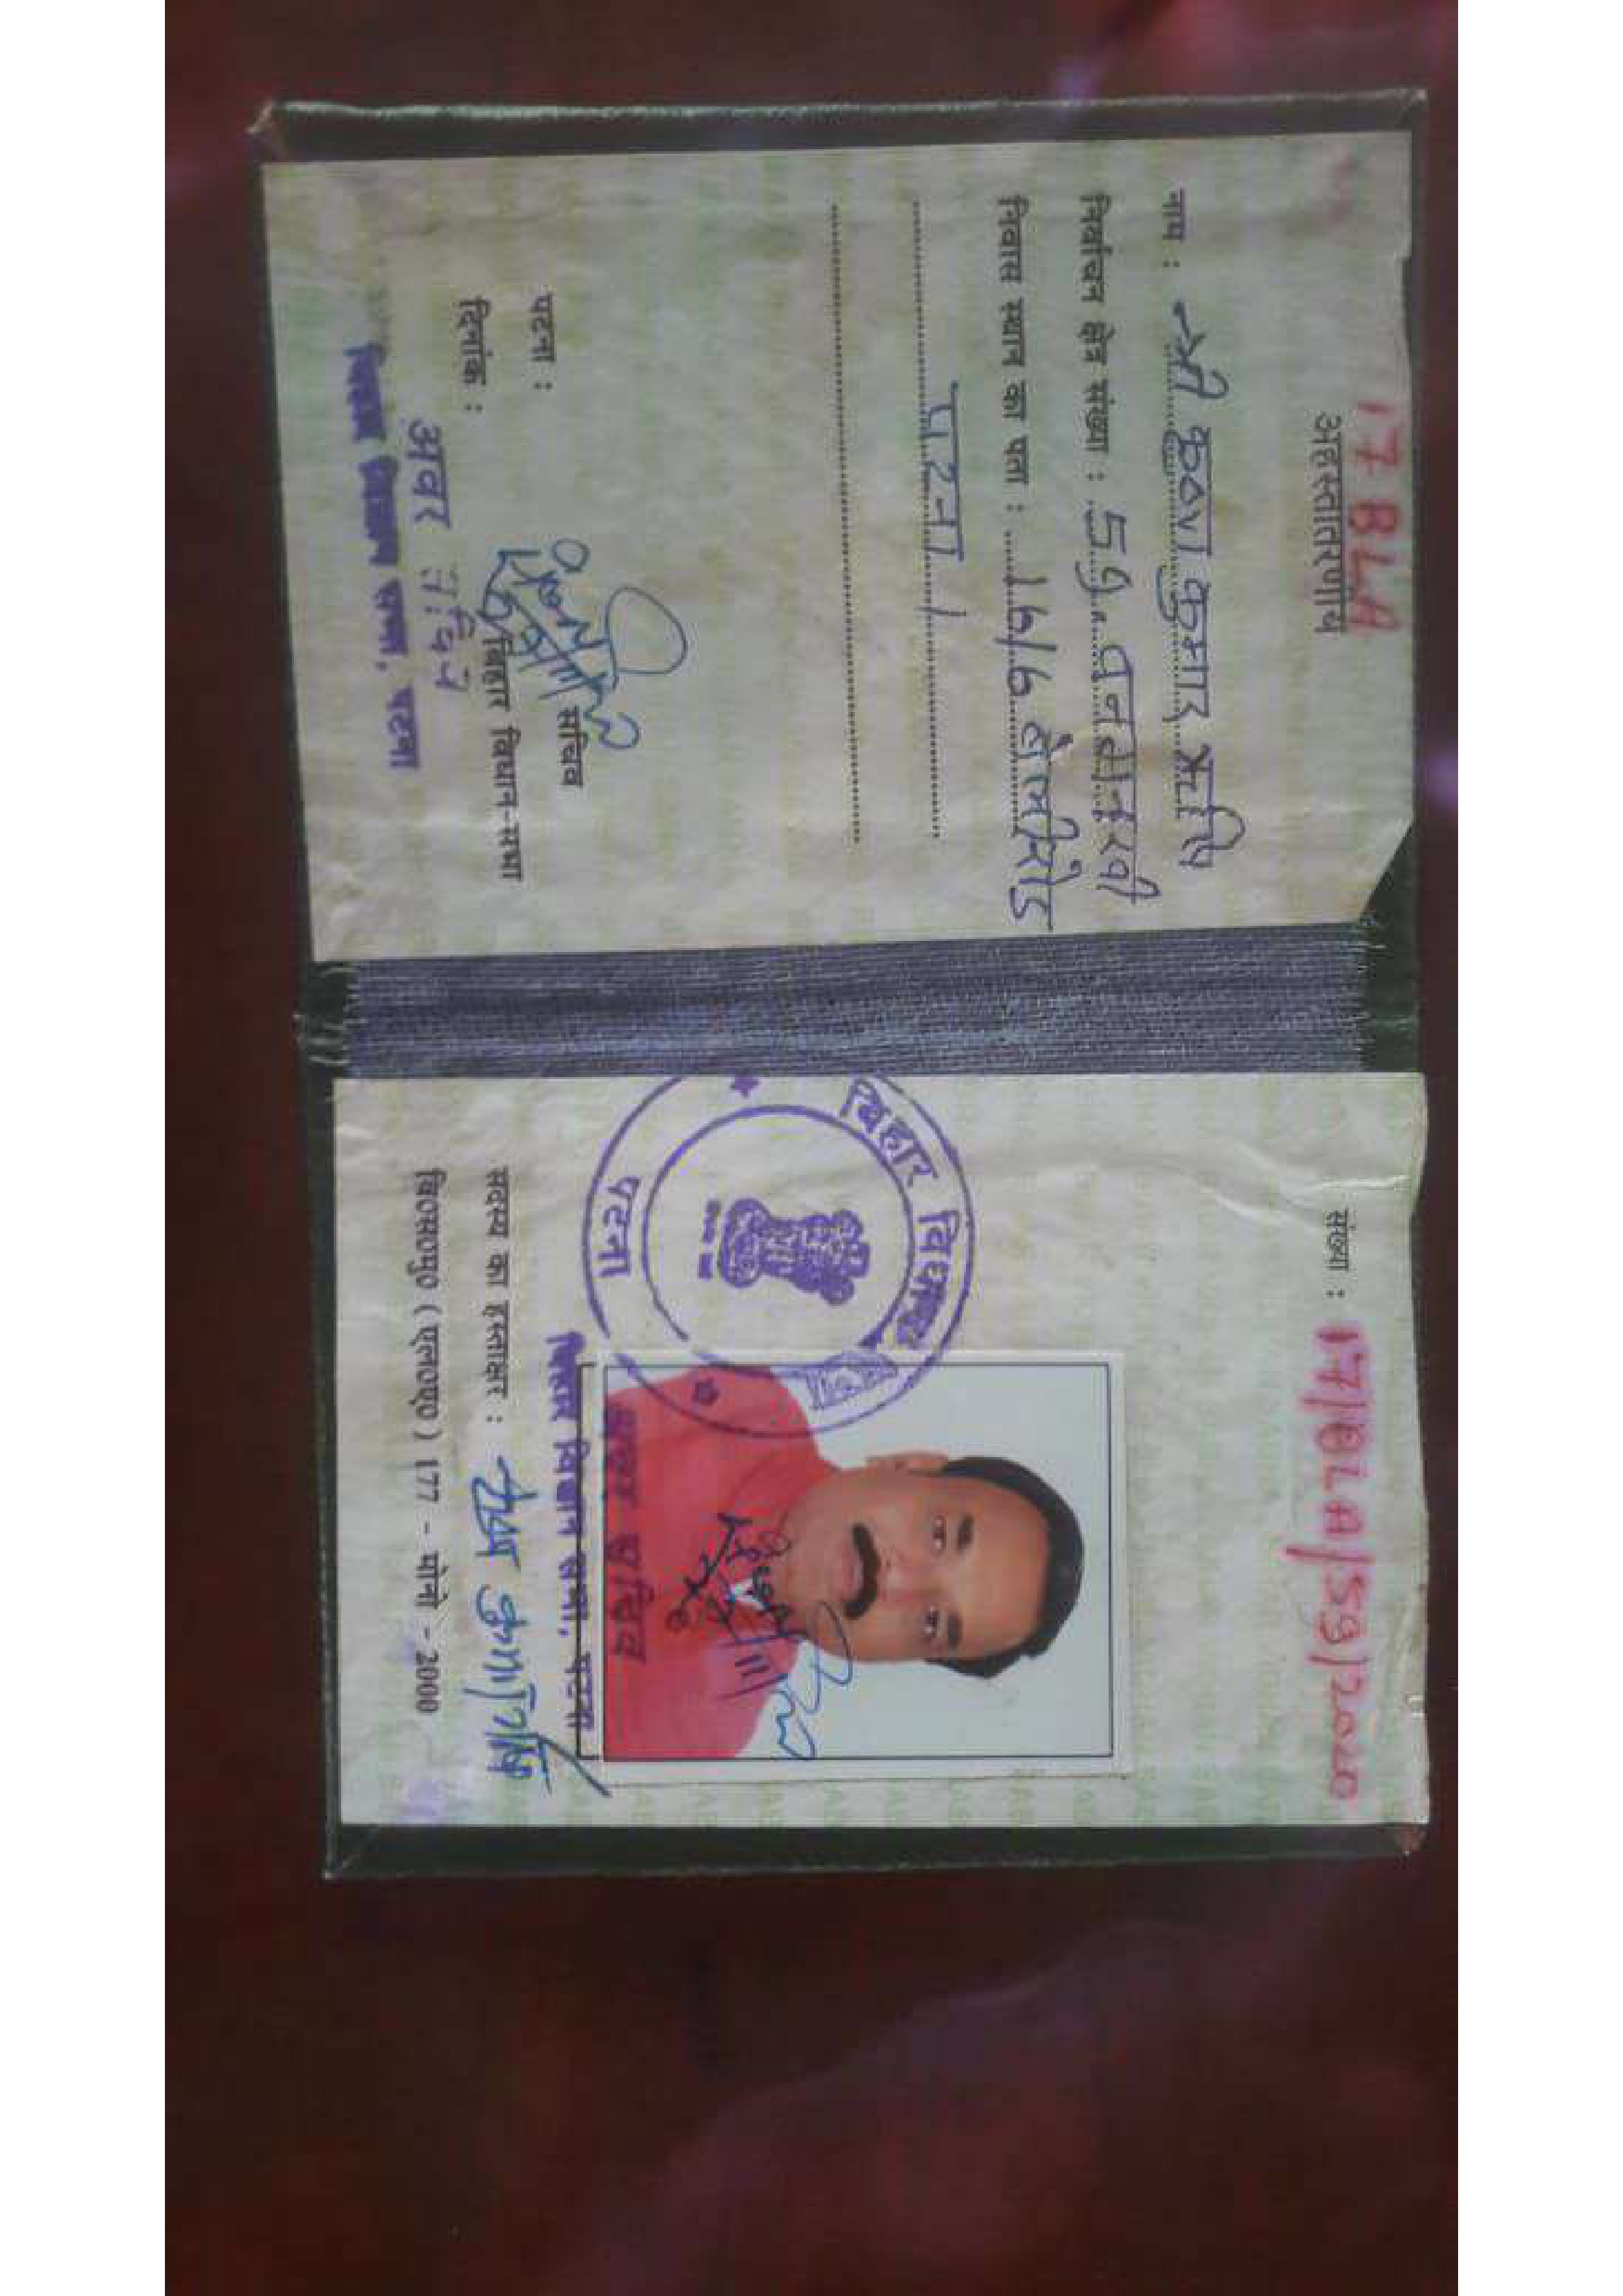 17 BLA
अहस्तांतरणीय
नाम : श्री कृष्ण कुमार ऋषि
निर्वाचन क्षेत्र संख्या : 59, बनमनखी
निवास स्थान का पता : 16/6 बेलीरोड
पटना ।
सचिव
बिहार विधान-सभा
पटना :
दिनांक :
अवर सचिव
बिहार विधान सभा, पटना
संख्या : 17/BLA/59/2020
बिहार विधानसभा
पटना
अवर सचिव
बिहार विधान सभा, पटना
सदस्य का हस्ताक्षर : कृष्ण कुमार ऋषि
बि०स०मु० (एल०ए०) 177 - मोनो - 2000